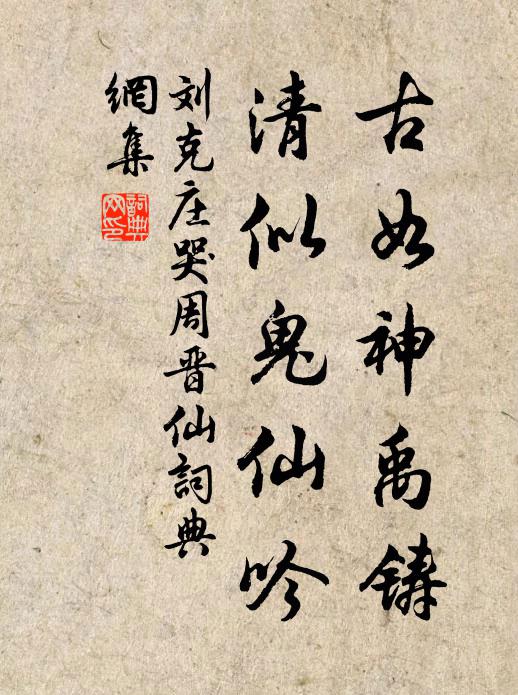 古如神禹铸
清似鬼仙吟
刘克庄哭周晋仙詞典
網集
詞典
网印